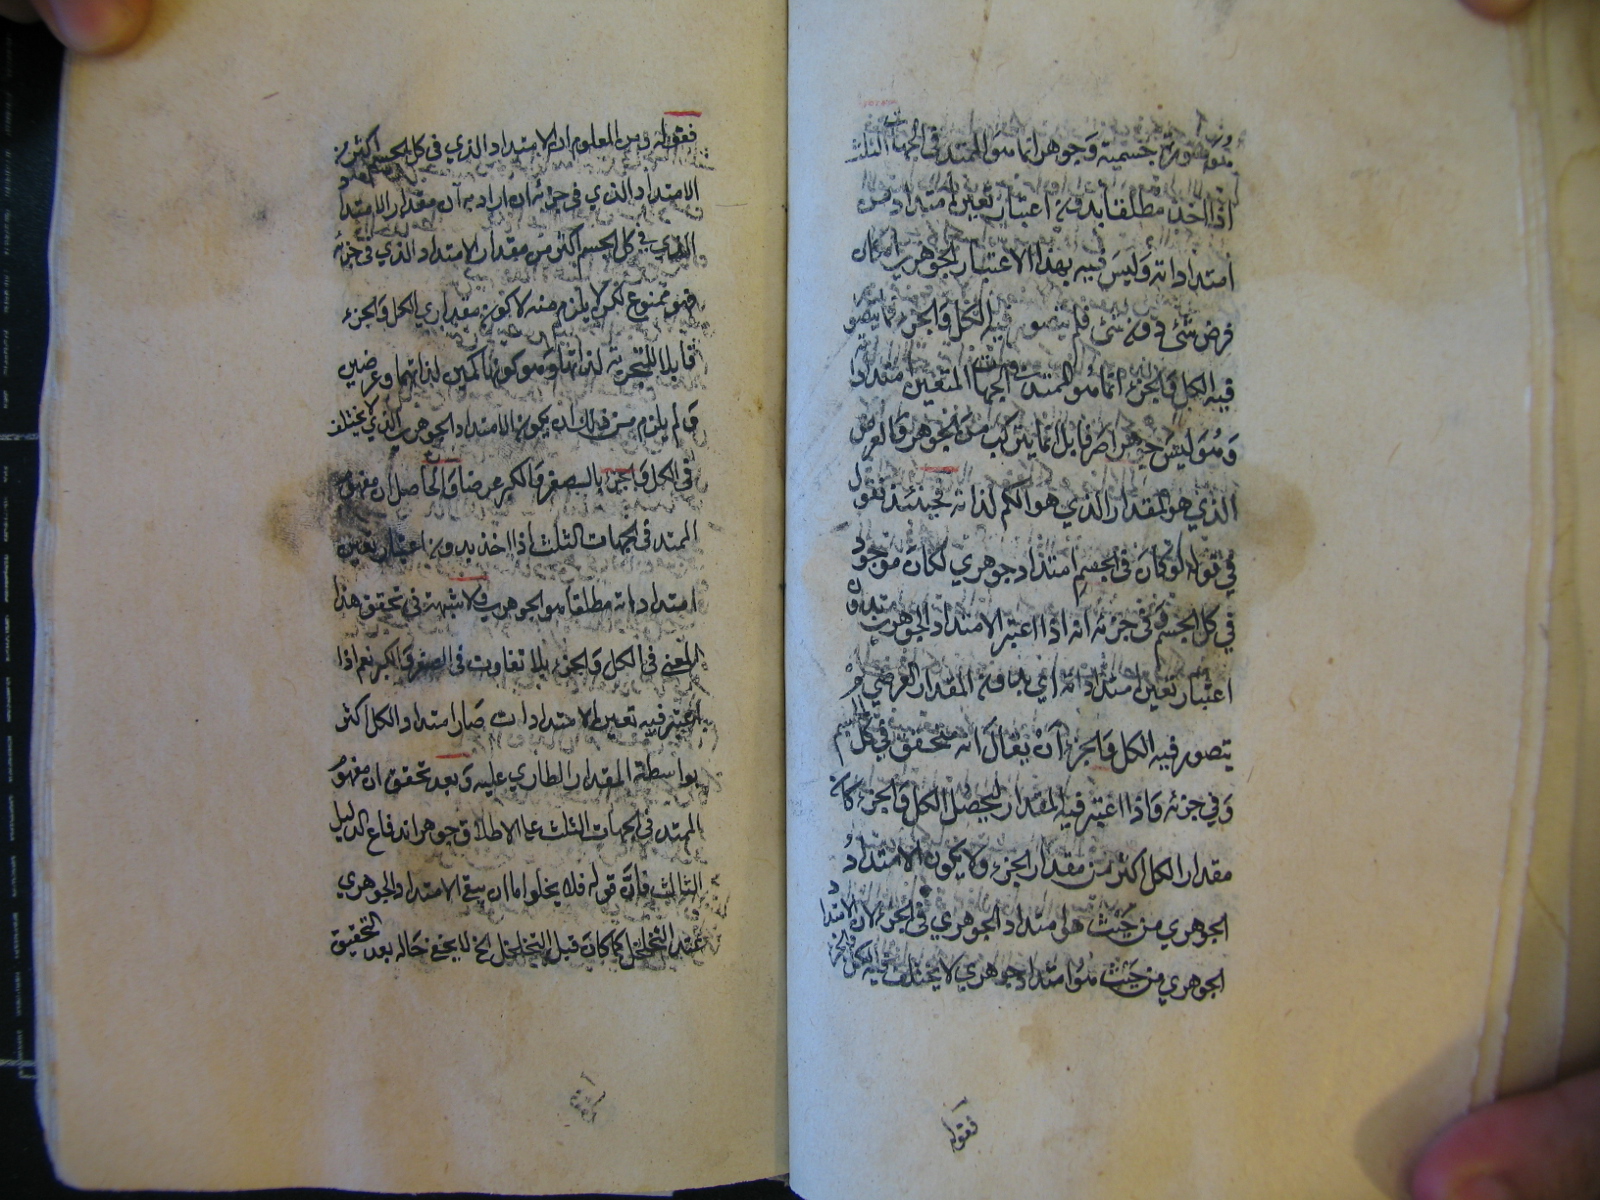 هو صورة جسمية وجوهر انما هو الممتد في الجهات الثلث
اذا اخذ مطلقا بدون اعتبار تعين امتداد من
امتداداته وليس فيه بهذا الاعتبار الجوهري امكان
فرض شئ دون شئ فلم يتصور فيه الكل والجزء فما يتصور
فيه الكل والجزء انما هو الممتد في الجهات الثلث المتعين امتدادا
وهو ليس جوهر اصرفا بل انما يتركب من الجوهر والعرض
الذي هو المقدار الذي هو الكم لذاته فحينئذ نقول
في قوله لو كان في الجسم امتداد جوهري لكان موجود
في كل الجسم وفي جزئه انه اذا اعتبر الامتداد الجوهري بدون
اعتبار تعين امتداداته اي بدون المقدار العرضي لم
يتصور فيه الكل والجزء ان يقال انه متحقق في كل الجسم
وفي جزئه واذا اعتبر فيه المقدار ليحصل الكل والجزء كان
مقدار الكل اكثر من مقدار الجزء ولا يكون الامتداد
الجوهري من حيث هو امتداد الجوهري في الجزء لان الامتداد
الجوهري من حيث هو امتداد جوهري لا يختلف فيه الكل والجزء
فقوله
فقوله ومن المعلوم ان الامتداد الذي في كل الجسم اكثر من
الامتداد الذي في جزئه ان اراد به ان مقدار الامتداد
الذي في كل الجسم اكثر من مقدار الامتداد الذي في جزئه
فهو ممنوع لكن لا يلزم منه الا كون مقداري الكل والجزء
قابلا للتجزية لذاتها وهو كونها كمين لذاتهما وعرضين
ولم يلزم من ذلك ان يكون الامتداد الجوهري الذي لا يختلف
في الكل والجزء بالصغر والكبر عرضا والحاصل ان مفهوم
الممتد في الجهات الثلث اذا اخذ بدون اعتبار تعين
امتداداته مطلقا هو الجوهري ولا شبهة في تحقق هذا
المعنى في الكل والجزء بلا تفاوت في الصغر والكبر نعم اذا
اعتبر فيه تعين الامتدادات صار امتداد الكل اكثر
بواسطة المقدار الطاري عليه وبعد تحقق ان مفهوم
الممتد في الجهات الثلث على الاطلاق جوهر اندفاع الدليل
الثالث فان قوله فلا يخلوا اما ان يبقى الامتداد الجوهري
عند التخلخل كما كان قبل التخلخل الخ لا يخفى حاله بعد التحقيق